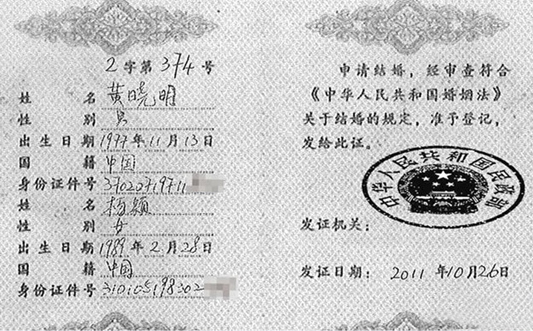 2字第374号
姓名 黄晓明
性别 男
出生日期 1977年11月13日
国籍 中国
身份证件号 3702071971
姓名 杨颖
性别 女
出生日期 1989年2月28日
国籍 中国
身份证件号
申请结婚，经审查符合
《中华人民共和国婚姻法》
关于结婚的规定，准予登记，
发给此证。
中华人民共和国民政部
发证机关：
发证日期：2011年10月26日